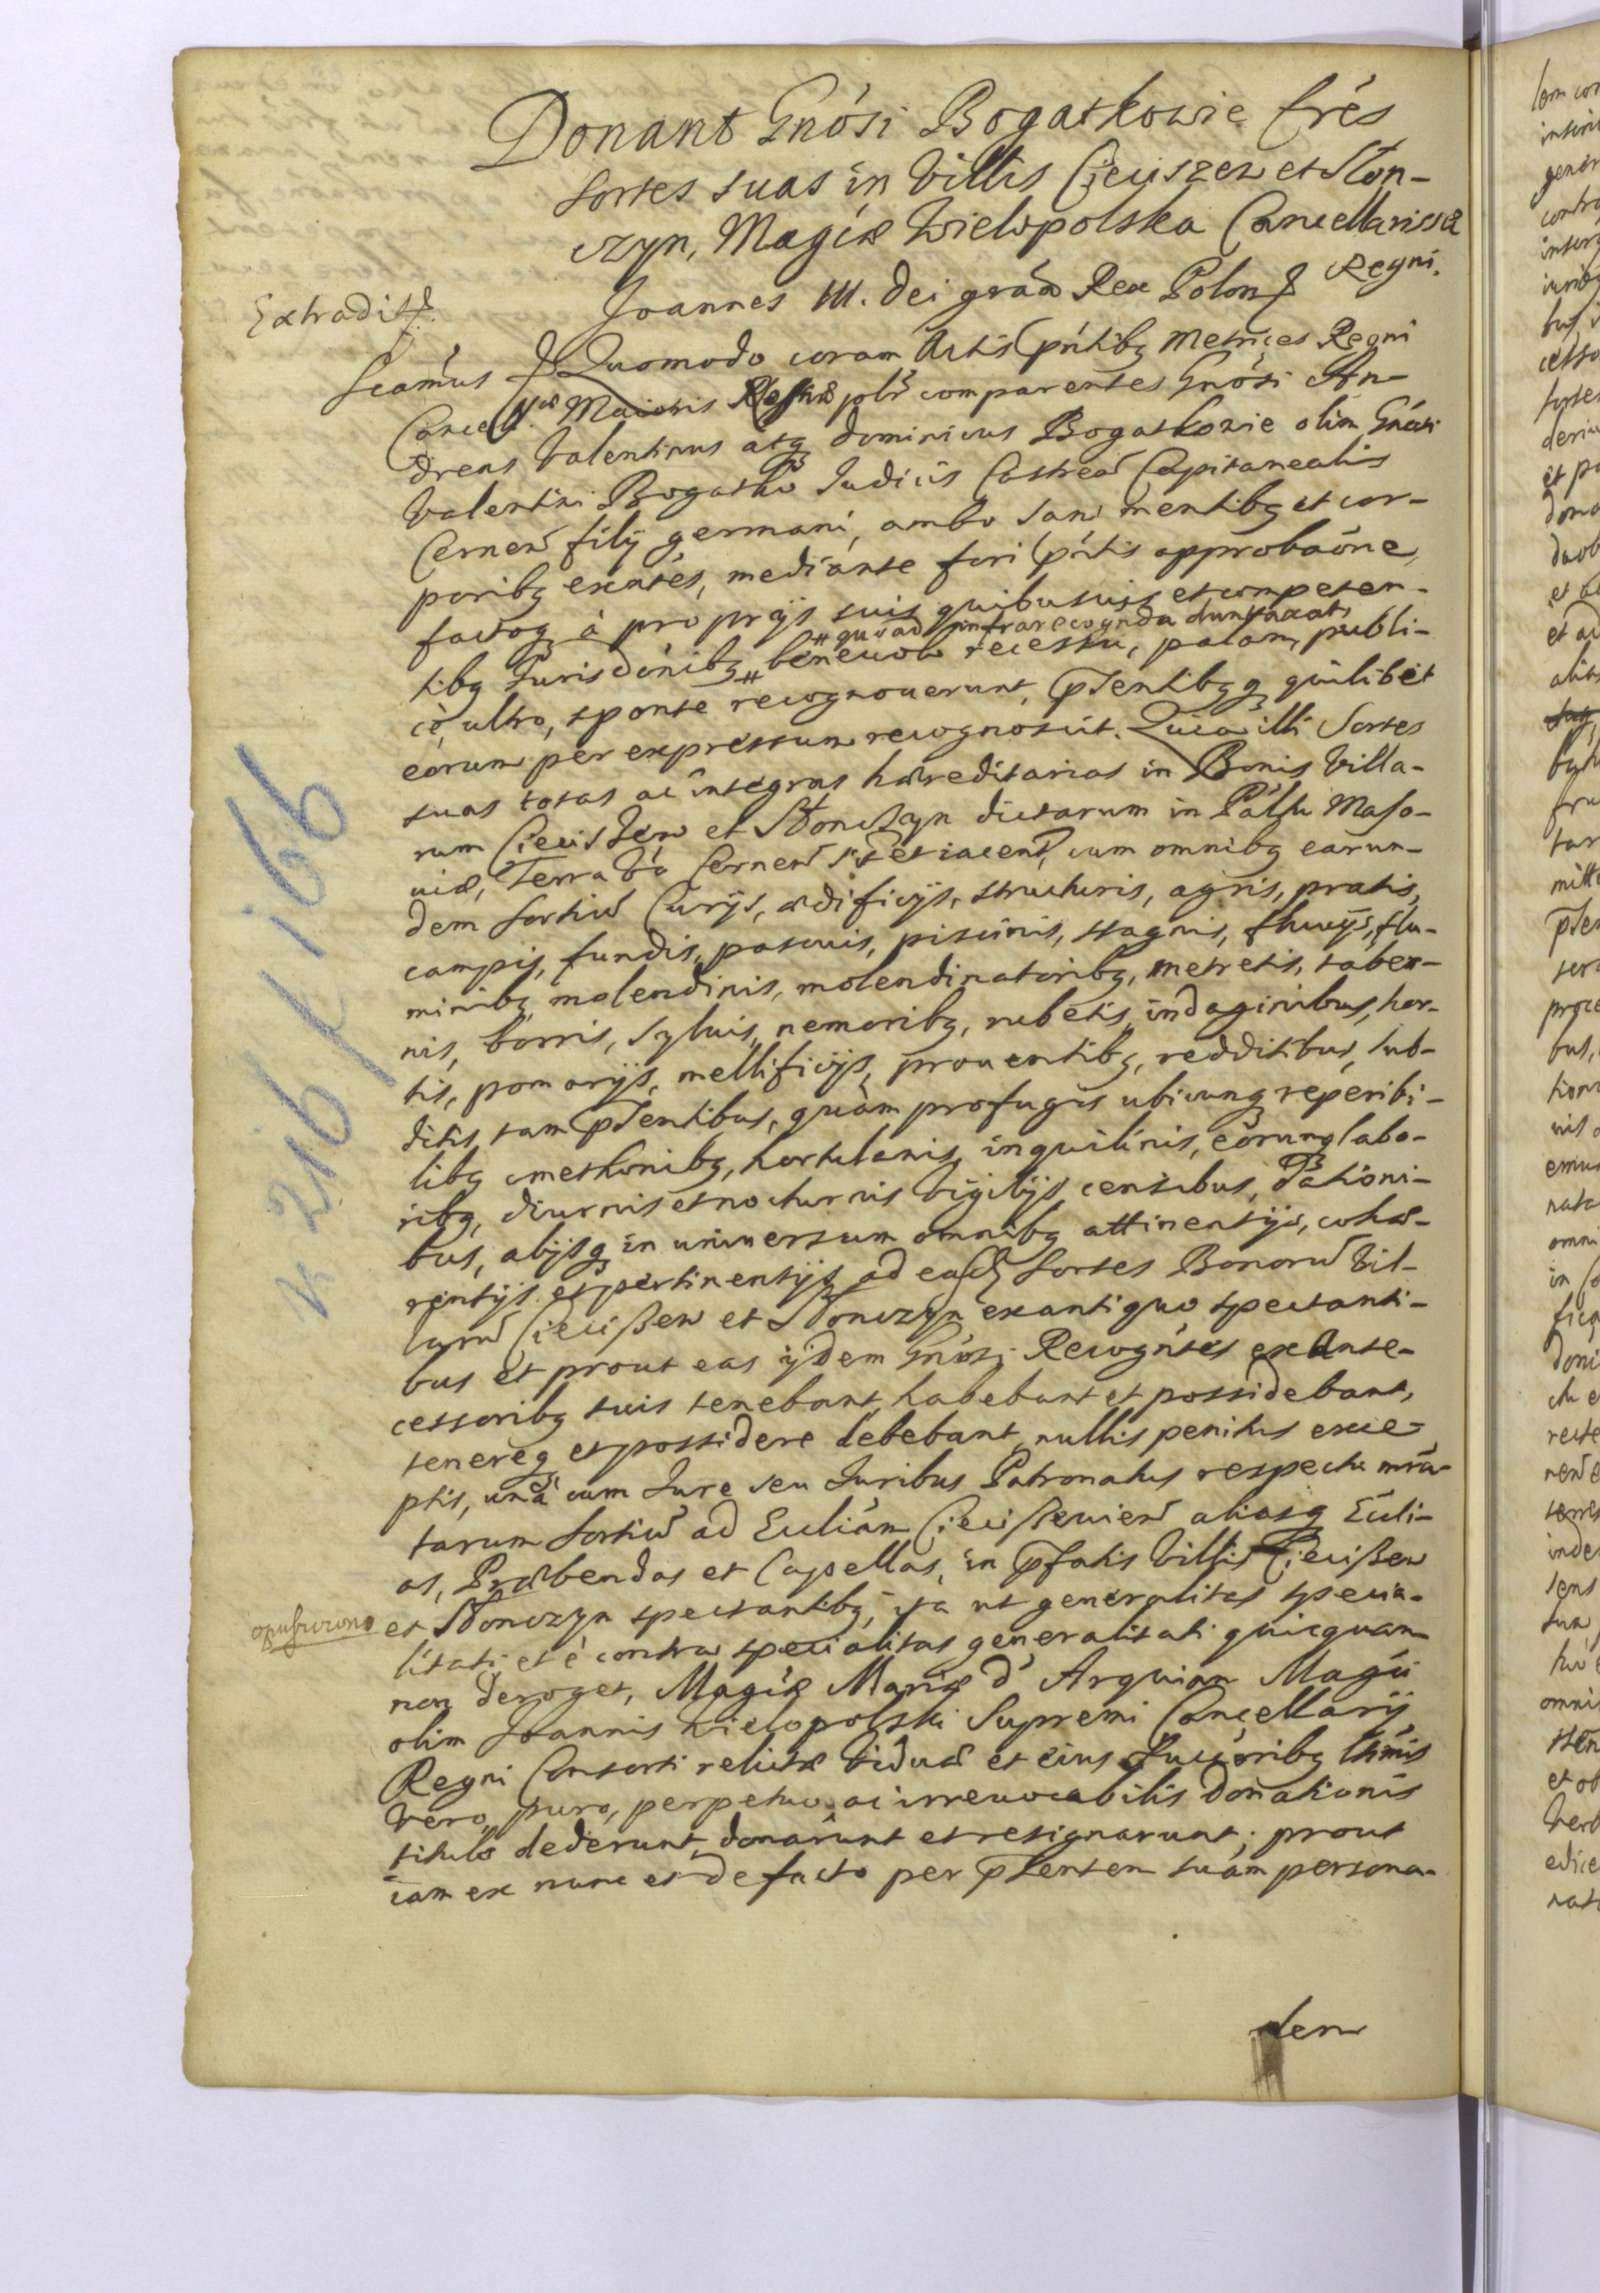 Donant Gnósi Bogatkowie frés
sortes suas in Villis Cieciszew et Słon-
czyn, Magcæ Wielopolska Cancellarissæ
Regni.
Joannes III. Dei grãa Rex Polon
Extradit
Scamus Quomodo coram Actis pñtibq Metrices Regni
Cancellæ Maioris Regni plr comparentes Gnósi An-
dreas Valentinus atq Dominicus Bogatkowie olim Gnósi
Valentini Bogatko Judicis Castren Capitanealis
Cernen filij germani, ambo sani mentibq et cor-
poribq existés, mediante fori pñtis approbaóne,
factoq à proprijs suis quibusuis et competen-
tibq Jurisdónibq # beneuolo recessu, palam, publi-
# quoad infrarecognda duntaxat
cè, ultro, sponte recognouerunt, pñtentibqq quilibèt
eorum per expressum recognoscit. Quia illi Sortes
suas totas ac integras hæreditarias in Bonis Villa-
rum Cieciszew et Słonczyn dictarum in Pałtu Maso-
uiæ, Terra và Cernen sit et iacent, cum omnibq earun-
dem sortiũ Curijs, ædificijs, structuris, agris, pratis,
campis, fundis, pascuis, piscinis, stagnis, fluuijs, flu-
minibq molendinis, molendinatoribq, metretis, taber-
nis, borris, syluis, nemoribq, rubetis, indaginibus, hor-
tis, pomarijs, mellificijs, prouentibq, redditibus, sub-
ditis, tam pñtentibus, quàm profugis ubicunq reperibi-
libq cmethonibq, hortulanis, inquilinis, eorumq labo-
ribq, diurnis et nocturnis vigilijs, censibus, dationi-
bus, alijsq in uniuersum omnibq attinentijs, cohæ-
rentijs et pertinentijs ad easd sortes Bonorũ Vil-
larũ Cieciszew et Słonczyn ex antiquo spectanti-
bus et prout eas ijdem Gnósi Recognítes ex Ante-
cessoribq suis tenebant, habebant et possidebant,
tenereq et possidere debebant, nullis penitus exce-
ptis, unà cum Jure seu Juribus Patronatus respectu mrã-
tarum sortiũ ad Ecclíam Cieciszewien aliasq Ecclí-
as, Præbendas et Capellas, in pfatis Villis Cieciszew
et Słonczyn spectantibq, ita ut generalitas specia-
litati et è contra specialitas generalitati quicquam
non deroget, Magcæ Mariæ d' Arquian Magci
olim Joannis Wielopolski Supremi Cancellarij
Regni Consorti relictæ Viduæ et eius Succéoribq ltimis
vero, puro, perpetuo, ac irreuocabilis donationis
titulo dederunt, donarunt et resignarunt, prout
iam ex nunc et de facto per pñtentem suam persona-
dem
K 216 f 166